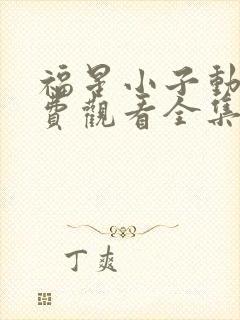 福星小子動
費觀看全集
丁爽